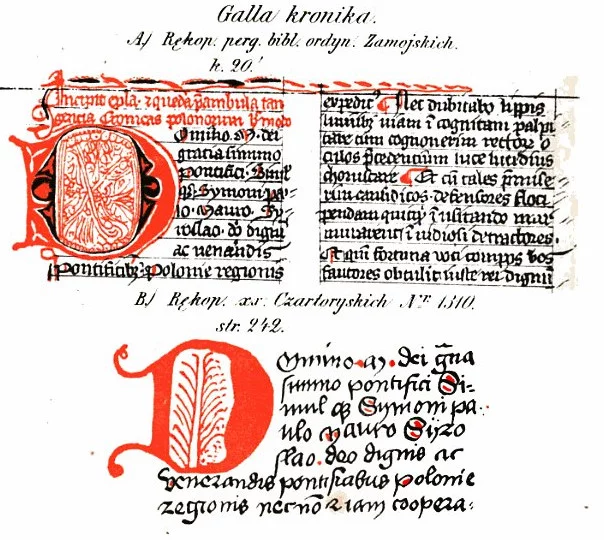 Galla kronika.
A) Rękop. perg. bibl. ordyn. Zamojskich.
k. 20.'
Incipit epla. ⁊ queda pambula tan
gencia Cronicas polonorum
Omino. M. dei
gracia summo
pontifici. Simul
qꝫ. Symoni pa-
lo. Mauro. Sy
roslao. do digni
ac uenandis
pontificibꝫ. Polonie regionis
expedit̉. Nec dubitabo lippis
luminibꝫ uiam ĩ cognitam palpi
tare cum cognouerim rectoꝝ o
culos p̃cedencium luce lucidius
choruscare. Et cũ tales p̃mise
rim causidicos. defensores floci
pendam quicqͥd inusitando mur
murauerĩt ĩuidiosi detractores.
Et qm̃ fortuna uoti compos uos
fautores obtulit iuste rei dignũ
B) Rękop. xx. Czartoryskich Nr. 1310.
str. 242.
Omino. M. dei gr̃na
summo pontifici Si-
mul qꝫ Symoni pa-
ulo Mauro Syro
slao. deo dignis ac
venerandis pontificibus polonie
regionis necnõ Riam coopera-